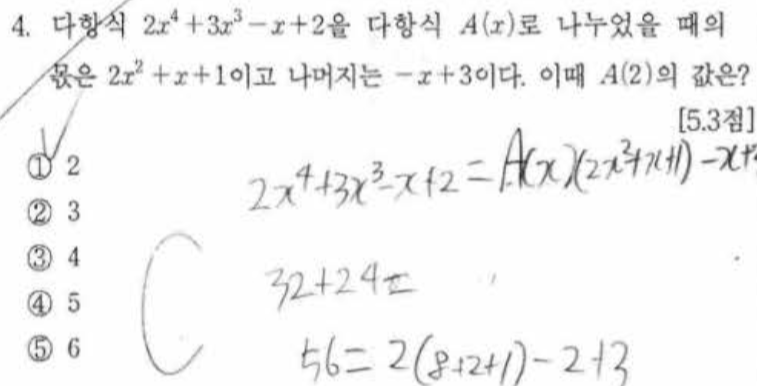 4. 다항식 2x⁴+3x³−x+2을 다항식 A(x)로 나누었을 때의
몫은 2x²+x+1이고 나머지는 −x+3이다. 이때 A(2)의 값은?
[5.3점]
① 2
② 3
③ 4
④ 5
⑤ 6
2x⁴+3x³-x+2=A(x)(2x²+x+1)-x+3
32+24=
56=2(8+2+1)-2+3